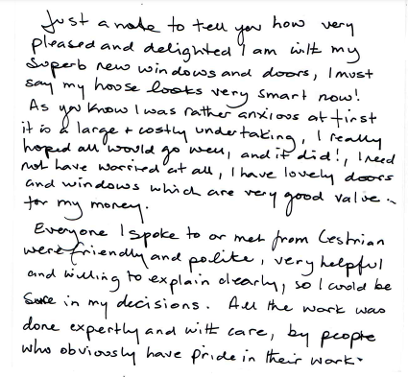 Just a note to tell you how very
pleased and delighted I am with my
superb new windows and doors, I must
say my house looks very smart now!
As you know I was rather anxious at first
it is a large + costly undertaking, I really
hoped all would go well, and it did!, I need
not have worried at all, I have lovely doors
and windows which are very good value -
for my money.
Everyone I spoke to or met from Cestrian
were friendly and polite, very helpful
and willing to explain clearly, so I could be
sure in my decisions. All the work was
done expertly and with care, by people
who obviously have pride in their work.